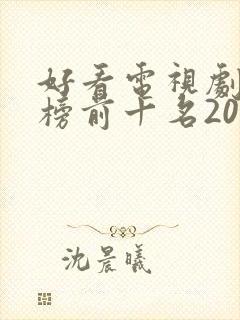 好看電視劇
榜前十名20
沈晨曦